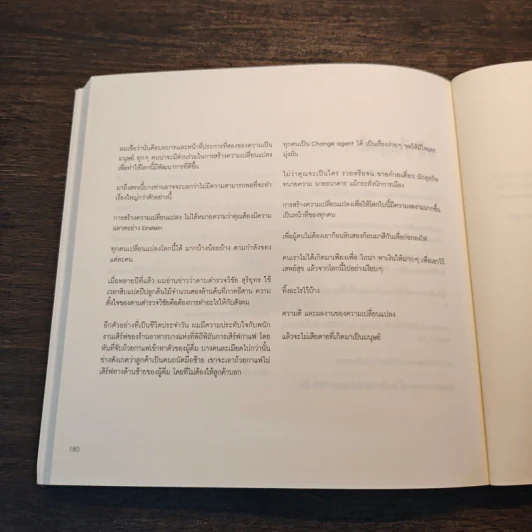 ผมเชื่อว่านั่นคือบทบาทและหน้าที่ประการที่สองของความเป็น
มนุษย์ ทุกๆ คนน่าจะมีส่วนร่วมในการสร้างความเปลี่ยนแปลง
เพื่อทำให้โลกนี้มีพัฒนาการที่ดีขึ้น
มาถึงตรงนี้บางท่านอาจจะบอกว่าไม่มีความสามารถพอที่จะทำ
เรื่องใหญ่กว่าตัวอย่างนี้
การสร้างความเปลี่ยนแปลง ไม่ได้หมายความว่าคุณต้องมีความ
ฉลาดอย่าง Einstein
ทุกคนเปลี่ยนแปลงโลกนี้ได้ มากบ้างน้อยบ้าง ตามกำลังของ
แต่ละคน
เมื่อหลายปีที่แล้ว ผมอ่านข่าวว่าดาบตำรวจวิชัย สุริยุทธ ใช้
เวลาสิบแปดปีปลูกต้นไม้จำนวนสองล้านต้นที่ภาคอีสาน ความ
ตั้งใจของดาบตำรวจวิชัยคือต้องการทำอะไรให้กับสังคม
อีกตัวอย่างที่เป็นชีวิตประจำวัน ผมมีความประทับใจกับพนัก
งานเสิร์ฟของร้านอาหารบางแห่งที่พิถีพิถันการเสิร์ฟกาแฟ โดย
หันที่จับถ้วยกาแฟเข้าหาตัวของผู้ดื่ม บางคนละเมียดไปกว่านั้น
ช่างสังเกตว่าลูกค้าเป็นคนถนัดมือซ้าย เขาจะเอาถ้วยกาแฟไป
เสิร์ฟทางด้านซ้ายของผู้ดื่ม โดยที่ไม่ต้องให้ลูกค้าบอก
180
ทุกคนเป็น Change agent ได้ เป็นเรื่องง่ายๆ ขอให้มีใจและ
มุ่งมั่น
ไม่ว่าคุณจะเป็นใคร รวยหรือจน ขายก๋วยเตี๋ยว นักธุรกิจ
ทนายความ นายธนาคาร แม้กระทั่งนักการเมือง
การสร้างความเปลี่ยนแปลงเพื่อให้โลกใบนี้มีความงดงามมากขึ้น
เป็นหน้าที่ของทุกคน
เพื่อผู้คนไม่ต้องเอาก้อนหินสองก้อนมาตีกันเพื่อก่อกองไฟ
คนเราไม่ได้เกิดมาเพียงเพื่อ ไขว่คว้า หาเงินให้มากๆ เพื่อเอาไว้
เสพสุข แล้วจากโลกนี้ไปอย่างเงียบๆ
ทิ้งอะไรไว้บ้าง
ความดี และผลงานของความเปลี่ยนแปลง
แล้วจะไม่เสียดายที่เกิดมาเป็นมนุษย์